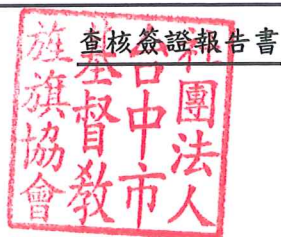 查核簽證報告書
社團法人
台中市
基督教
旌旗協會